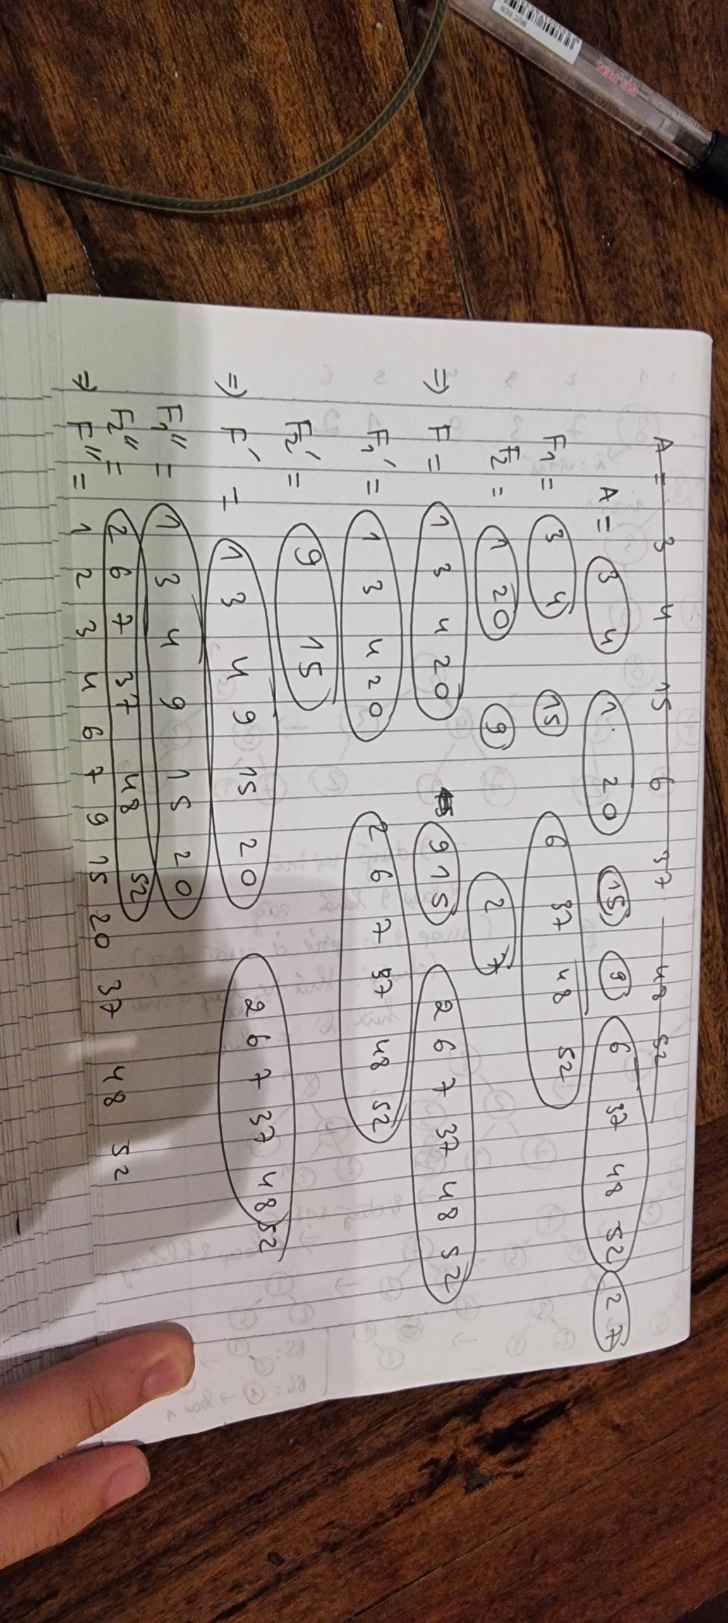 A = 3 4 15 6 37 48 52
A = 3 4 1 20 15 9 6 37 48 52 2 7
F1 = 3 4 15 6 37 48 52
F2 = 1 20 9 2 7
⇒ F = 1 3 4 20 9 15 2 6 7 37 48 52
F1' = 1 3 4 20 2 6 7 37 48 52
F2' = 9 15
⇒ F' = 1 3 4 9 15 20 2 6 7 37 48 52
F1'' = 1 3 4 9 15 20
F2'' = 2 6 7 37 48 52
⇒ F''' = 1 2 3 4 6 7 9 15 20 37 48 52